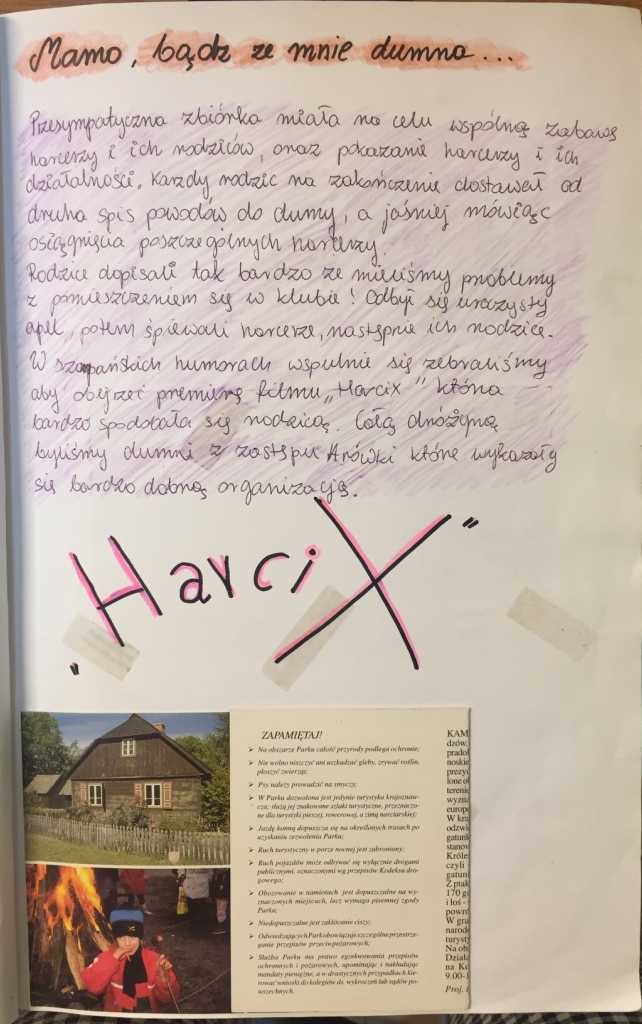 Mamo, bądź ze mnie dumna...
Przesympatyczna zbiórka miała na celu wspólną zabawę
harcerzy i ich rodziców, oraz pokazanie harcerzy i ich
działalności. Każdy rodzic na zakończenie dostawał od
druha spis powodów do dumy, a jaśniej mówiąc
osiągnięcia poszczególnych harcerzy.
Rodzice dopisali tak bardzo ze mieliśmy problemy
z pomieszczeniem się w klubie! Odbył się uroczysty
apel, potem śpiewali harcerze, następnie ich rodzice.
W szampańskich humorach wspulnie się zebraliśmy
aby obejrzeć premierę filmu "Harcix" która
bardzo spodobała się rodzicą. Całą drużyną
byliśmy dumni z zastępu Arówki które wykazały
się bardzo dobrą organizacją.
"HarciX"
ZAPAMIĘTAJ!
➤ Na obszarze Parku całość przyrody podlega ochronie;
➤ Nie wolno niszczyć ani uszkadzać gleby, zrywać roślin,
płoszyć zwierząt;
➤ Psy należy prowadzić na smyczy;
➤ W Parku dozwolona jest jedynie turystyka krajoznaw-
cza: służą jej znakowane szlaki turystyczne, przeznaczo-
ne dla turystyki pieszej, rowerowej, a zimą narciarskiej;
➤ Jazdę konną dopuszcza się na określonych trasach po
uzyskaniu zezwolenia Parku;
➤ Ruch turystyczny w porze nocnej jest zabroniony;
➤ Ruch pojazdów może odbywać się wyłącznie drogami
publicznymi, oznaczonymi wg przepisów Kodeksu dro-
gowego;
➤ Obozowanie w namiotach jest dopuszczalne na wy-
znaczonych miejscach, lecz wymaga pisemnej zgody
Parku;
➤ Niedopuszczalne jest zakłócanie ciszy;
➤ Odwiedzających Park obowiązuje szczególne przestrze-
ganie przepisów przeciwpożarowych;
➤ Służba Parku ma prawo egzekwowania przepisów
ochronnych i pożarowych, upominając i nakładając
mandaty pieniężne, a w drastycznych przypadkach kie-
rować wnioski do kolegiów ds. wykroczeń lub sądów po-
wszechnych.
KAM
dzów.
pradol
noskie
prezyc
lone ob
terenie
wyzna
europe
W kra
odzws
gatunk
stanow
Króles
czyli
gatun
Z ptak
170 ga
i łoś -
powró
W gra
narode
turyst
Na ob
Działa
na Ko
9.00-1
Proj. i